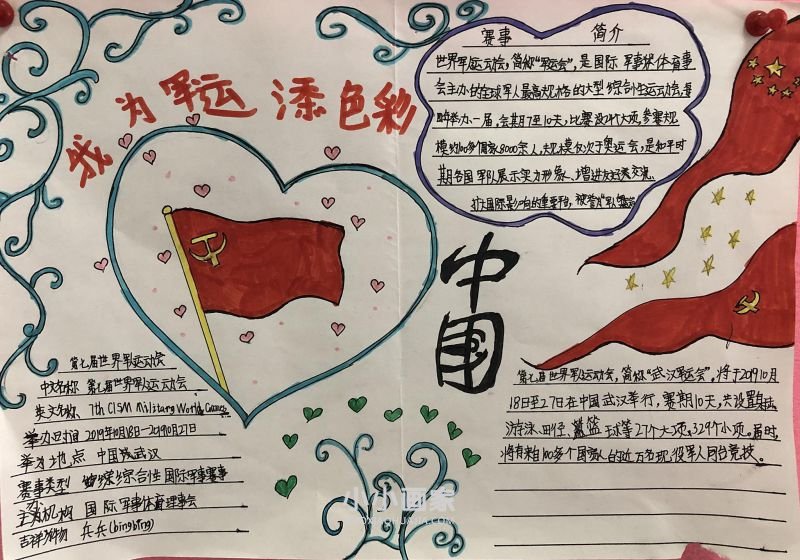 我为军运添色彩
赛事 简介
世界军人运动会，简称“军运会”，是国际军事体育理事
会主办的全球军人最高规格的大型综合性运动会，每
四年举办一届，会期7至10天，比赛设27个大项，参赛规
模约100多个国家8000余人，规模仅次于奥运会，是和平时
期各国军队展示实力形象、增进友好交流、
扩大国际影响的重要平台，被誉为“军人奥运会
中国
第七届世界军人运动会
中文名称 第七届世界军人运动会
英文名称 7th CISM Military World Games
举办时间 2019年10月18日—2019年10月27日
举办地点 中国武汉
赛事类型 综合性国际军事赛事
主办机构 国际军事体育理事会
吉祥物 兵兵(bingbing)
第七届世界军人运动会，简称“武汉军运会”，将于2019年10月
18日至27日在中国武汉举行，赛期10天，共设置射击、
游泳、田径、篮球等27个大项、329个小项。届时，
将有来自100多个国家的近万名现役军人同台竞技。
小小画家